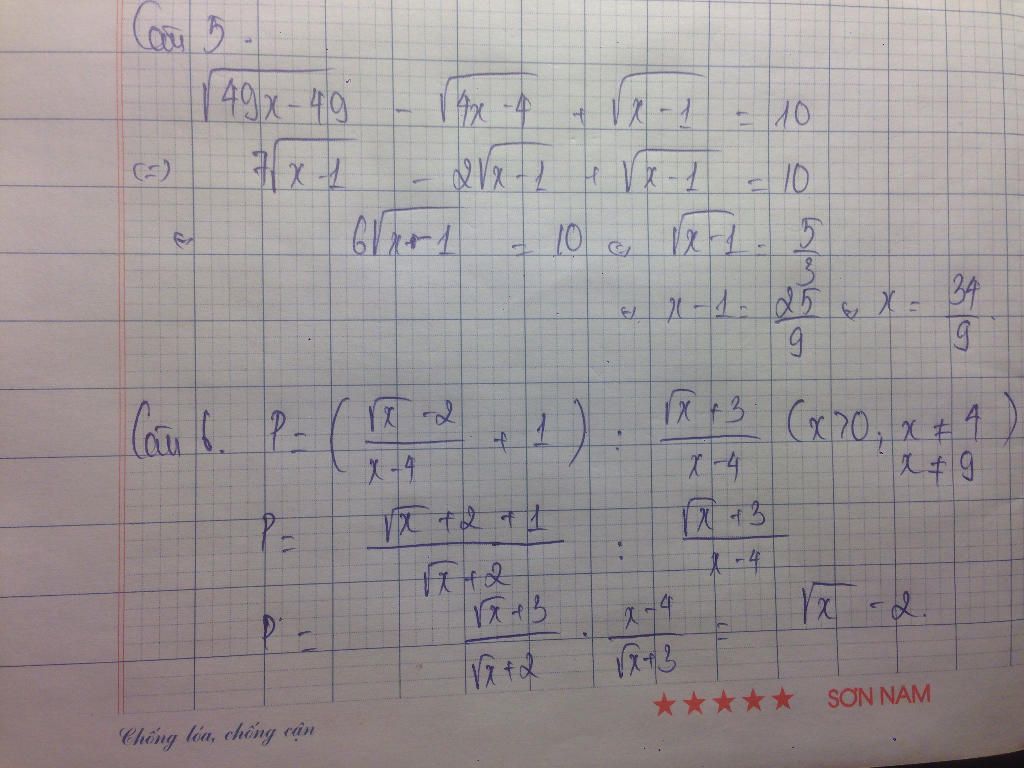 Câu 5.
√(49x-49) - √(4x-4) + √(x-1) = 10
(=) 7√(x-1) - 2√(x-1) + √(x-1) = 10
⇔ 6√(x-1) = 10 ⇔ √(x-1) = 5/3
⇔ x-1 = 25/9 ⇔ x = 34/9.
Câu 6. P = ((√x - 2)/(x-4) + 1) : (√x + 3)/(x-4) (x>0; x ≠ 4 x ≠ 9)
P = (√x + 2 + 1)/(√x + 2) : (√x + 3)/(x-4)
P = (√x+3)/(√x+2) . (x-4)/(√x+3) = √x - 2.
★★★★★ SƠN NAM
Chống lóa, chống cận